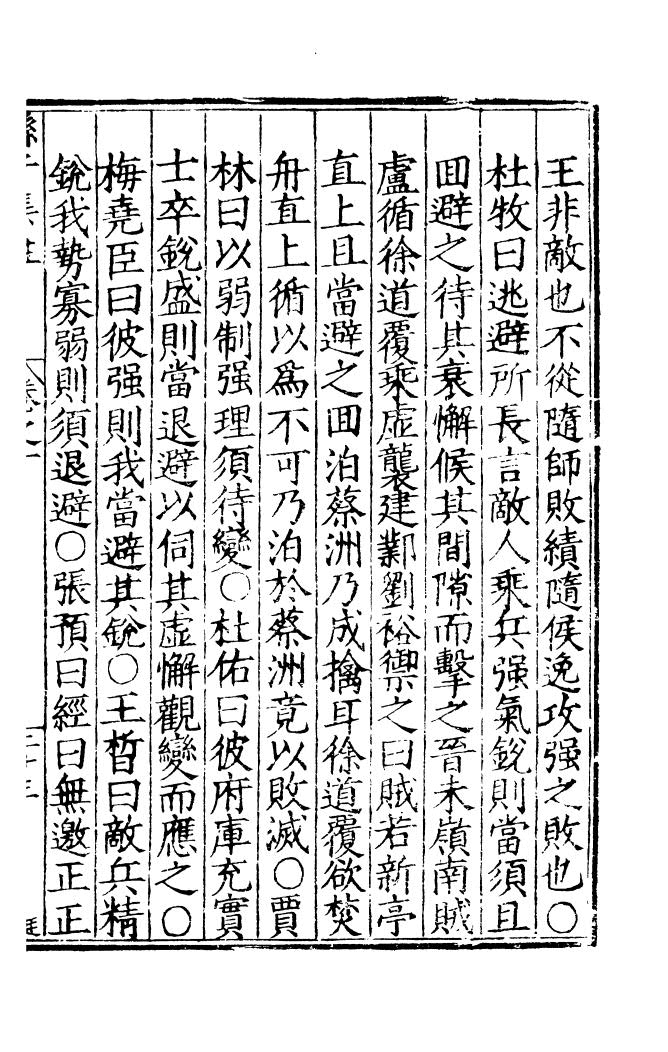 王非敵也不從隨師敗績隨侯逸攻强之敗也○
杜牧曰逃避所長言敵人乘兵强氣銳則當須且
囬避之待其衰懈候其間隙而擊之晉末嶺南賊
盧循徐道覆乘虛襲建鄴劉裕禦之曰賊若新亭
直上且當避之囬泊蔡洲乃成擒耳徐道覆欲焚
舟直上循以爲不可乃泊於蔡洲竟以敗滅○賈
林曰以弱制强理須待變○杜佑曰彼府庫充實
士卒銳盛則當退避以伺其虛懈觀變而應之○
梅堯臣曰彼强則我當避其銳○王晳曰敵兵精
銳我勢寡弱則須退避○張預曰經曰無邀正正